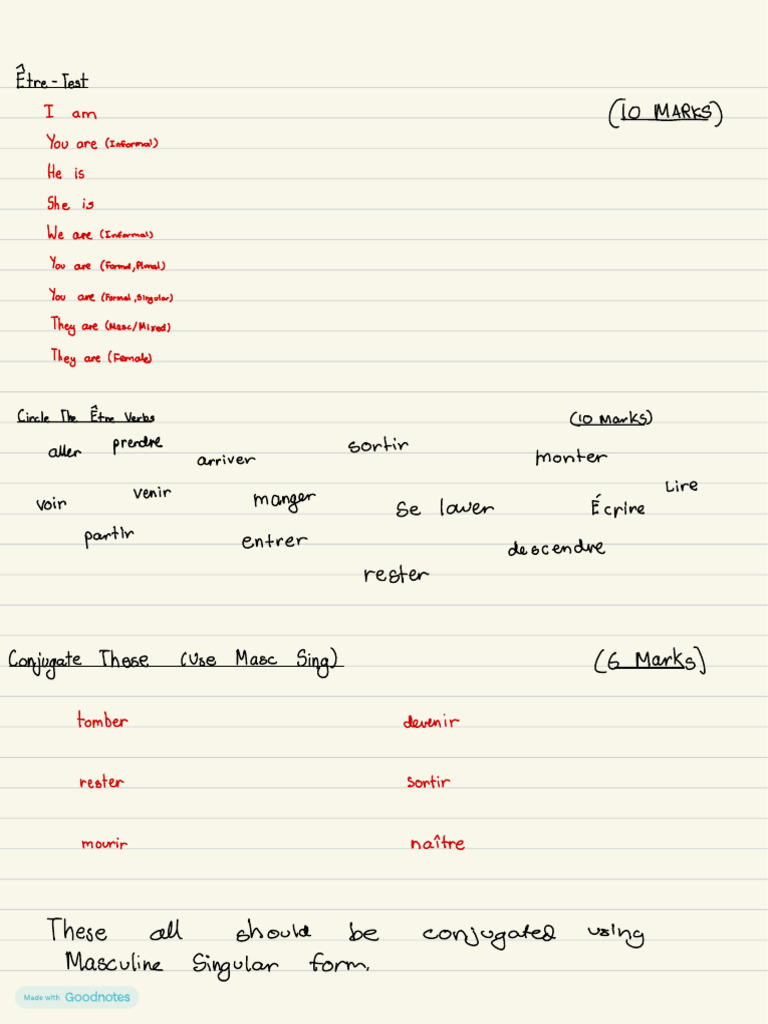 Être - Test
I am
(10 MARKS)
You are (Informal)
He is
She is
We are (Informal)
You are (Formal, Plural)
You are (Formal, Singular)
They are (Masc/Mixed)
They are (Female)
Circle The Être Verbs (10 Marks)
aller prendre arriver sortir monter
voir venir manger se lower Écrire Lire
partir entrer descendre
rester
Conjugate These (Use Masc Sing) (6 Marks)
tomber devenir
rester sortir
mourir naître
These all should be conjugated using
Masculine Singular form.
Made with Goodnotes